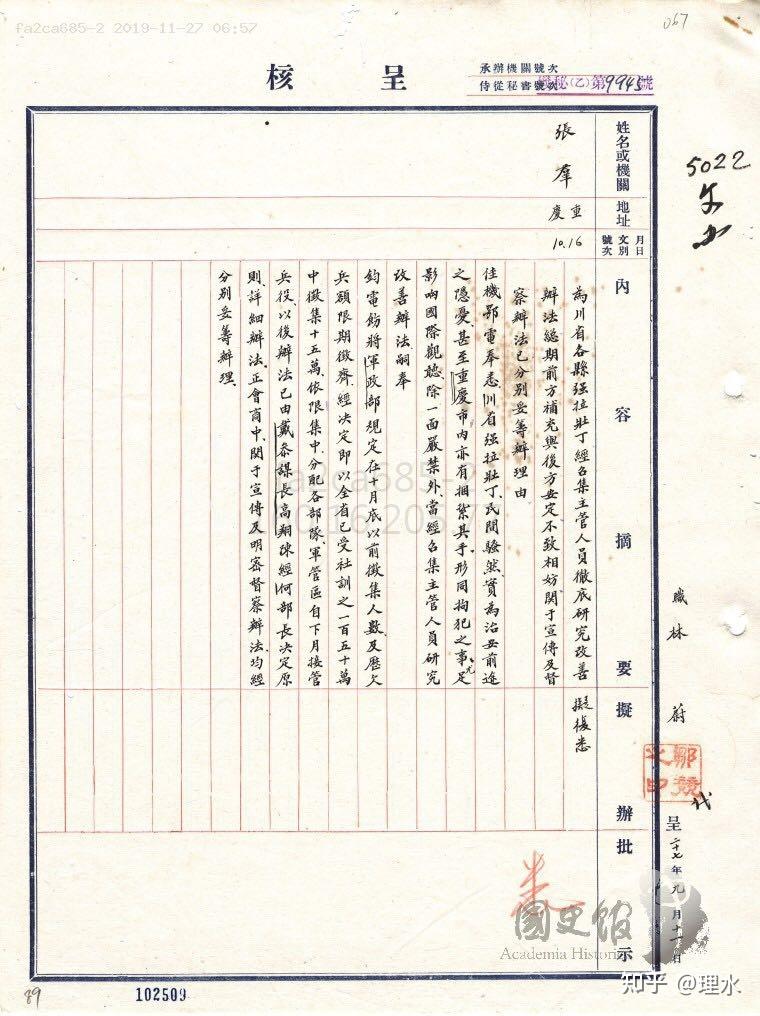 fa2ca685-2 2019-11-27 06:57
067
呈核
承辦機關號次
侍從秘書號次
機秘(乙)第9945號
5022
姓名或機關
張羣
地址
重慶
月日
文別
號次
10.16
內容摘要
為川省各縣强拉壯丁經召集主管人員徹底研究改善
辦法總期前方補充與後方安定不致相妨關于宣傳及督
察辦法已分別妥籌辦理由
佳機鄂電奉悉川省强拉壯丁、民間騷然實為治安前途
之隱憂、甚至重慶市內亦有捆紮其手、形同拘犯之事、尤足
影响國際觀聽、除一面嚴禁外、當經召集主管人員研究
改善辦法嗣奉
鈞電飭將軍政部規定在十月底以前徵集人數、及歷欠
兵額限期徵齊、經決定即以全省已受社訓之一百五十萬
中徵集十五萬、依限集中、分配各部隊、軍管區自下月接管
兵役、以後辦法已由戴參謀長高翔陳經何部長決定原
則、詳細辦法、正會商中、關于宣傳及明密督察辦法、均經
分別妥籌辦理、
擬辦
擬復悉
批示
悉
職林蔚
鄒競之印
代
呈
二十七年九月十一日
fa2ca685-2
國史館
Academia Historica
知乎 @理水
89
102509